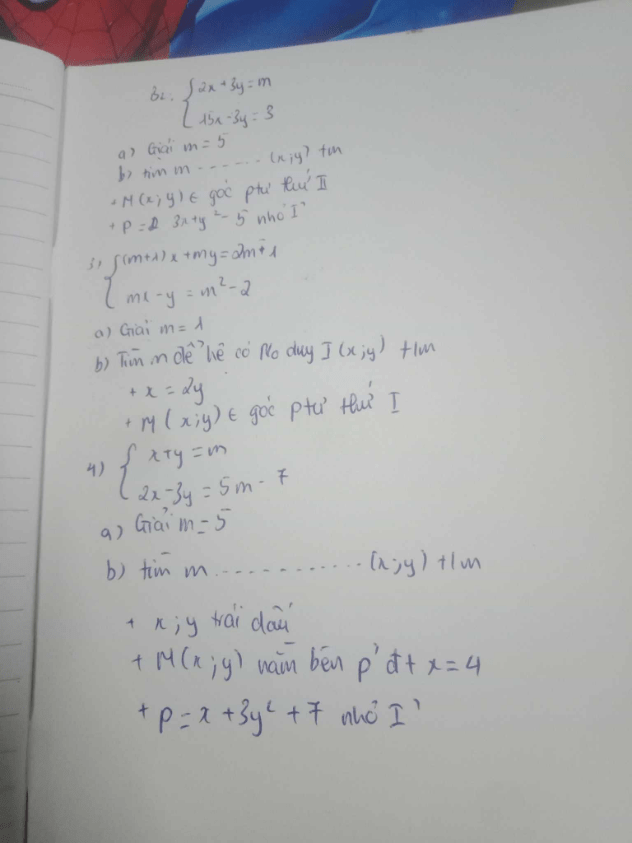 32. { 2x + 3y = m
15x - 3y = 3
a) Giải m = 5
b) tìm m ....... (x;y) t/m
+ M(x;y) ∈ góc ptư thứ II
+ P = 3x + y² - 5 nhỏ I'
3) { (m+1)x + my = 2m + 1
mx - y = m² - 2
a) Giải m = 1
b) Tìm m để hệ có No duy I (x;y) t/m
+ x = 2y
+ M(x;y) ∈ góc ptư thứ I
4) { x + y = m
2x - 3y = 5m - 7
a) Giải m = 5
b) tìm m ............ (x;y) t/m
+ x;y trái dấu
+ M(x;y) nằm bên p' đt x = 4
+ P = x + 3y² + 7 nhỏ I'